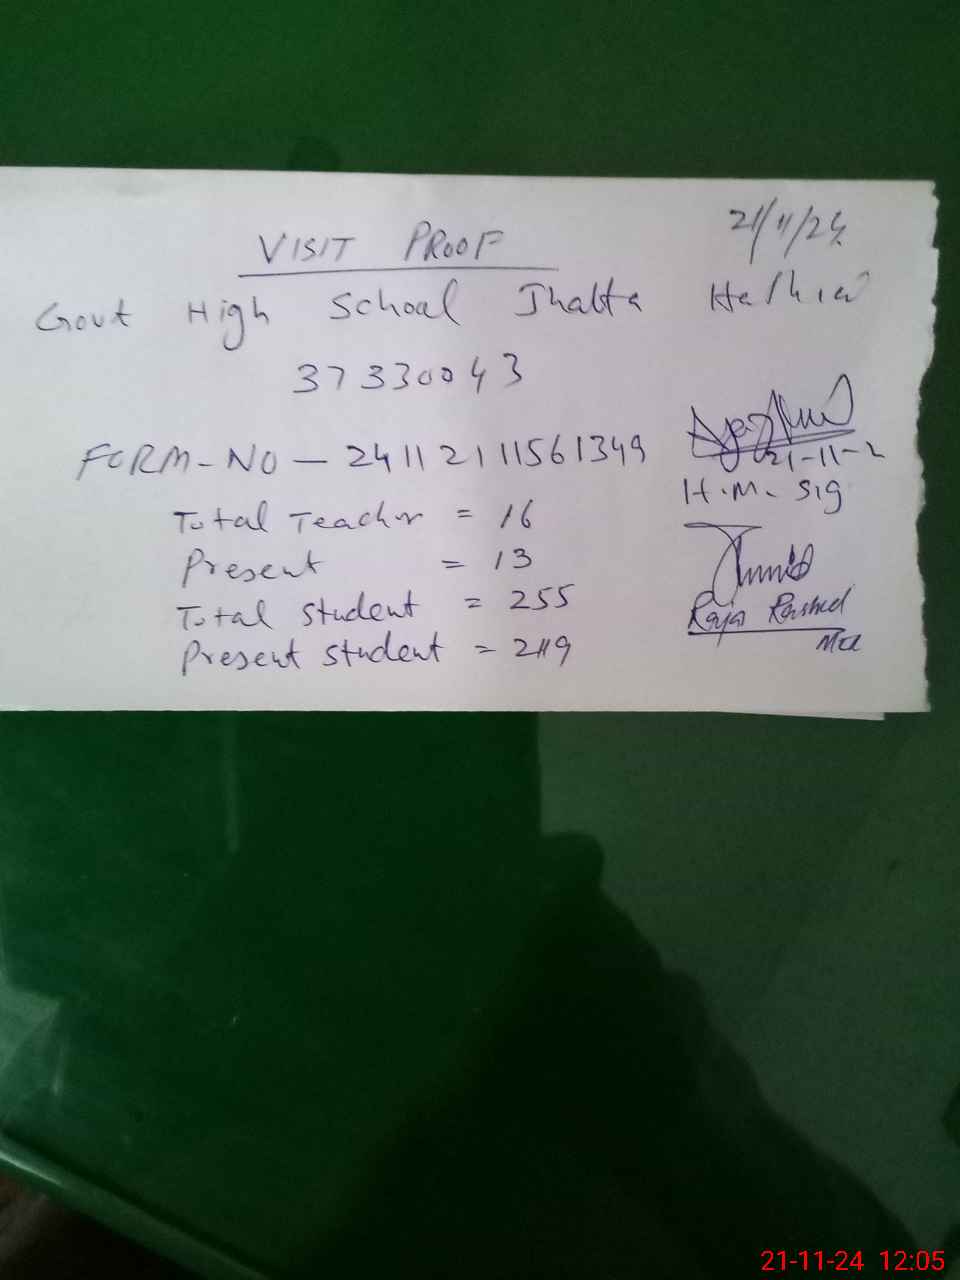 21/11/24
VISIT PROOF
Govt High School Jhatta Hathial
37330043
FORM-NO - 24112111561349
Total Teacher = 16
Present = 13
Total Student = 255
Present Student = 219
21-11-2
H.M. Sig
Raja Rashid
MEA
21-11-24 12:05